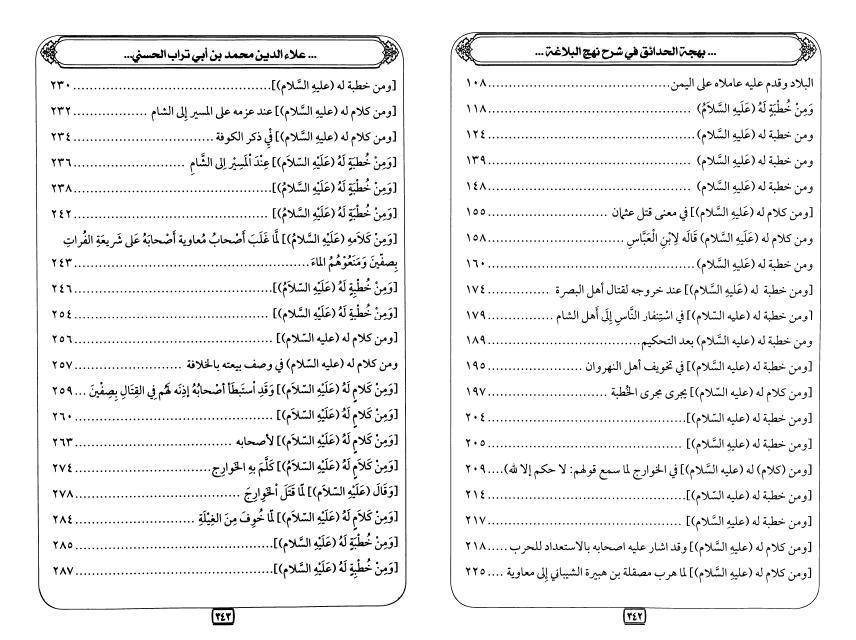 ... بهجة الحدائق في شرح نهج البلاغة ...
البلاد وقدم عليه عاملاه على اليمن........................................١٠٨
وَمِنْ خُطْبَةٍ لَهُ (عَلَيْهِ السَّلَامُ) ........................................١١٨
ومن خطبة له (عليه السَّلام)........................................١٢٤
ومن خطبة له (عَليهِ السَّلام) ........................................١٣٩
ومن خطبة له (عَليهِ السَّلام) ........................................١٤٨
[ومن كلام له (عَليهِ السَّلام)] في معنى قتل عثمان ........................................١٥٥
ومن كلام له (عَلَيهِ السَّلام) قَالَه لِابْنِ الْعَبَّاسِ ........................................١٥٨
ومن خطبة له (عَليهِ السَّلام)........................................١٦٠
[ومن خطبة له (عَليهِ السَّلام)] عند خروجه لقتال أهل البصرة ........................................١٧٤
[ومن خطبة له (عليه السّلام)] في اسْتِنفار النَّاسِ إِلَى أَهل الشام ........................................١٧٩
ومن خطبة له (عليه السَّلام) بعد التحكيم........................................١٨٩
[ومن خطبة له (عليه السَّلام)] في تخويف أهل النهروان ........................................١٩٥
[ومن كلام له (عليه السّلام)] يجرى مجرى الخُطبة ........................................١٩٧
[ومن خطبة له (عليه السّلام)]........................................٢٠٤
[ومن خطبة له (عليه السَّلام)] ........................................٢٠٥
[ومن (كلام) له (عليه السَّلام)] في الخوارج لما سمع قولهم: لا حكم إلا لله)....٢٠٩
[ومن خطبة له (عليه السّلام)]........................................٢١٤
[ومن خطبة له (عليه السّلام)] ........................................٢١٧
[ومن كلام له (عليه السَّلام)] وقد اشار عليه اصحابه بالاستعداد للحرب.....٢١٨
[ومن كلام له (عليه السَّلام)] لما هرب مصقلة بن هبيرة الشيباني إلى معاوية ....٢٢٥
٣٤٢
... علاء الدين محمد بن أبي تراب الحسني...
[ومن خطبة له (عليهِ السَّلام)]........................................٢٣٠
[ومن كلام له (عليه السَّلام)] عند عزمه على المسير إلى الشام ........................................٢٣٢
[ومن كلام له (عليه السَّلام)] في ذكر الكوفة ........................................٢٣٤
[وَمِنْ خُطْبَةٍ لَهُ (عَلَيْهِ السَّلاَم)] عِنْدَ الْمَسِيْر الى الشَّامِ ........................................٢٣٦
[وَمِنْ خُطْبَةٍ لَهُ (عَلَيْهِ السَّلام)]........................................٢٣٨
[وَمِنْ خُطْبَةٍ لَهُ (عَلَيْهِ السَّلامُ)] ........................................٢٤٢
[وَمِنْ كَلَامِهِ (عَلَيْهِ السَّلامُ)] لَمَّا غَلَبَ أَصْحابُ مُعاوية أَصْحابَهُ عَلى شَريعَةِ الفُراتِ
بِصِفِّينَ وَمَنَعُوْهُمُ الماءَ........................................٢٤٣
[وَمِنْ خُطْبَةٍ لَهُ (عَلَيْهِ السَّلاَمُ)]........................................٢٤٦
[وَمِنْ خُطْبَةٍ لَهُ (عَلَيْهِ السَّلامُ)] ........................................٢٥٤
[ومن كلام له (عليه السّلام)] ........................................٢٥٦
ومن كلام له (عليه السّلام) في وصف بيعته بالخلافة ........................................٢٥٧
[وَمِنْ كَلَامٍ لَهُ (عَلَيْهِ السَّلاَم)] وَقَدِ اسْتَبْطَأَ أصْحابُهُ إذنَه لَهُم فِي القِتَالِ بِصِفِّينَ ...٢٥٩
[وَمِنْ كَلَامٍ لَهُ (عَلَيْهِ السَّلاَم)] ........................................٢٦٠
[وَمِنْ كَلَامٍ لَهُ (عَلَيْهِ السَّلاَم)] لأصحابه ........................................٢٦٣
[وَمِنْ كَلَامٍ لَهُ (عَلَيْهِ السَّلاَمُ)] كَلَّمَ بِهِ الخَوارِج........................................٢٧٤
[وَقَالَ (عَلَيْهِ السَّلام)] لَمّا قَتَلَ الْخَوارِجَ ........................................٢٧٨
[وَمِنْ كَلَامٍ لَهُ (عَلَيْهِ السَّلاَم)] لَمَّا خُوفَ مِنَ الغِيْلَةِ ........................................٢٨٤
[وَمِنْ خُطْبَةٍ لَهُ (عَلَيْهِ السَّلام)]........................................٢٨٥
[وَمِنْ خُطْبَةٍ لَهُ (عَلَيْهِ السَّلام)]........................................٢٨٧
٣٤٣